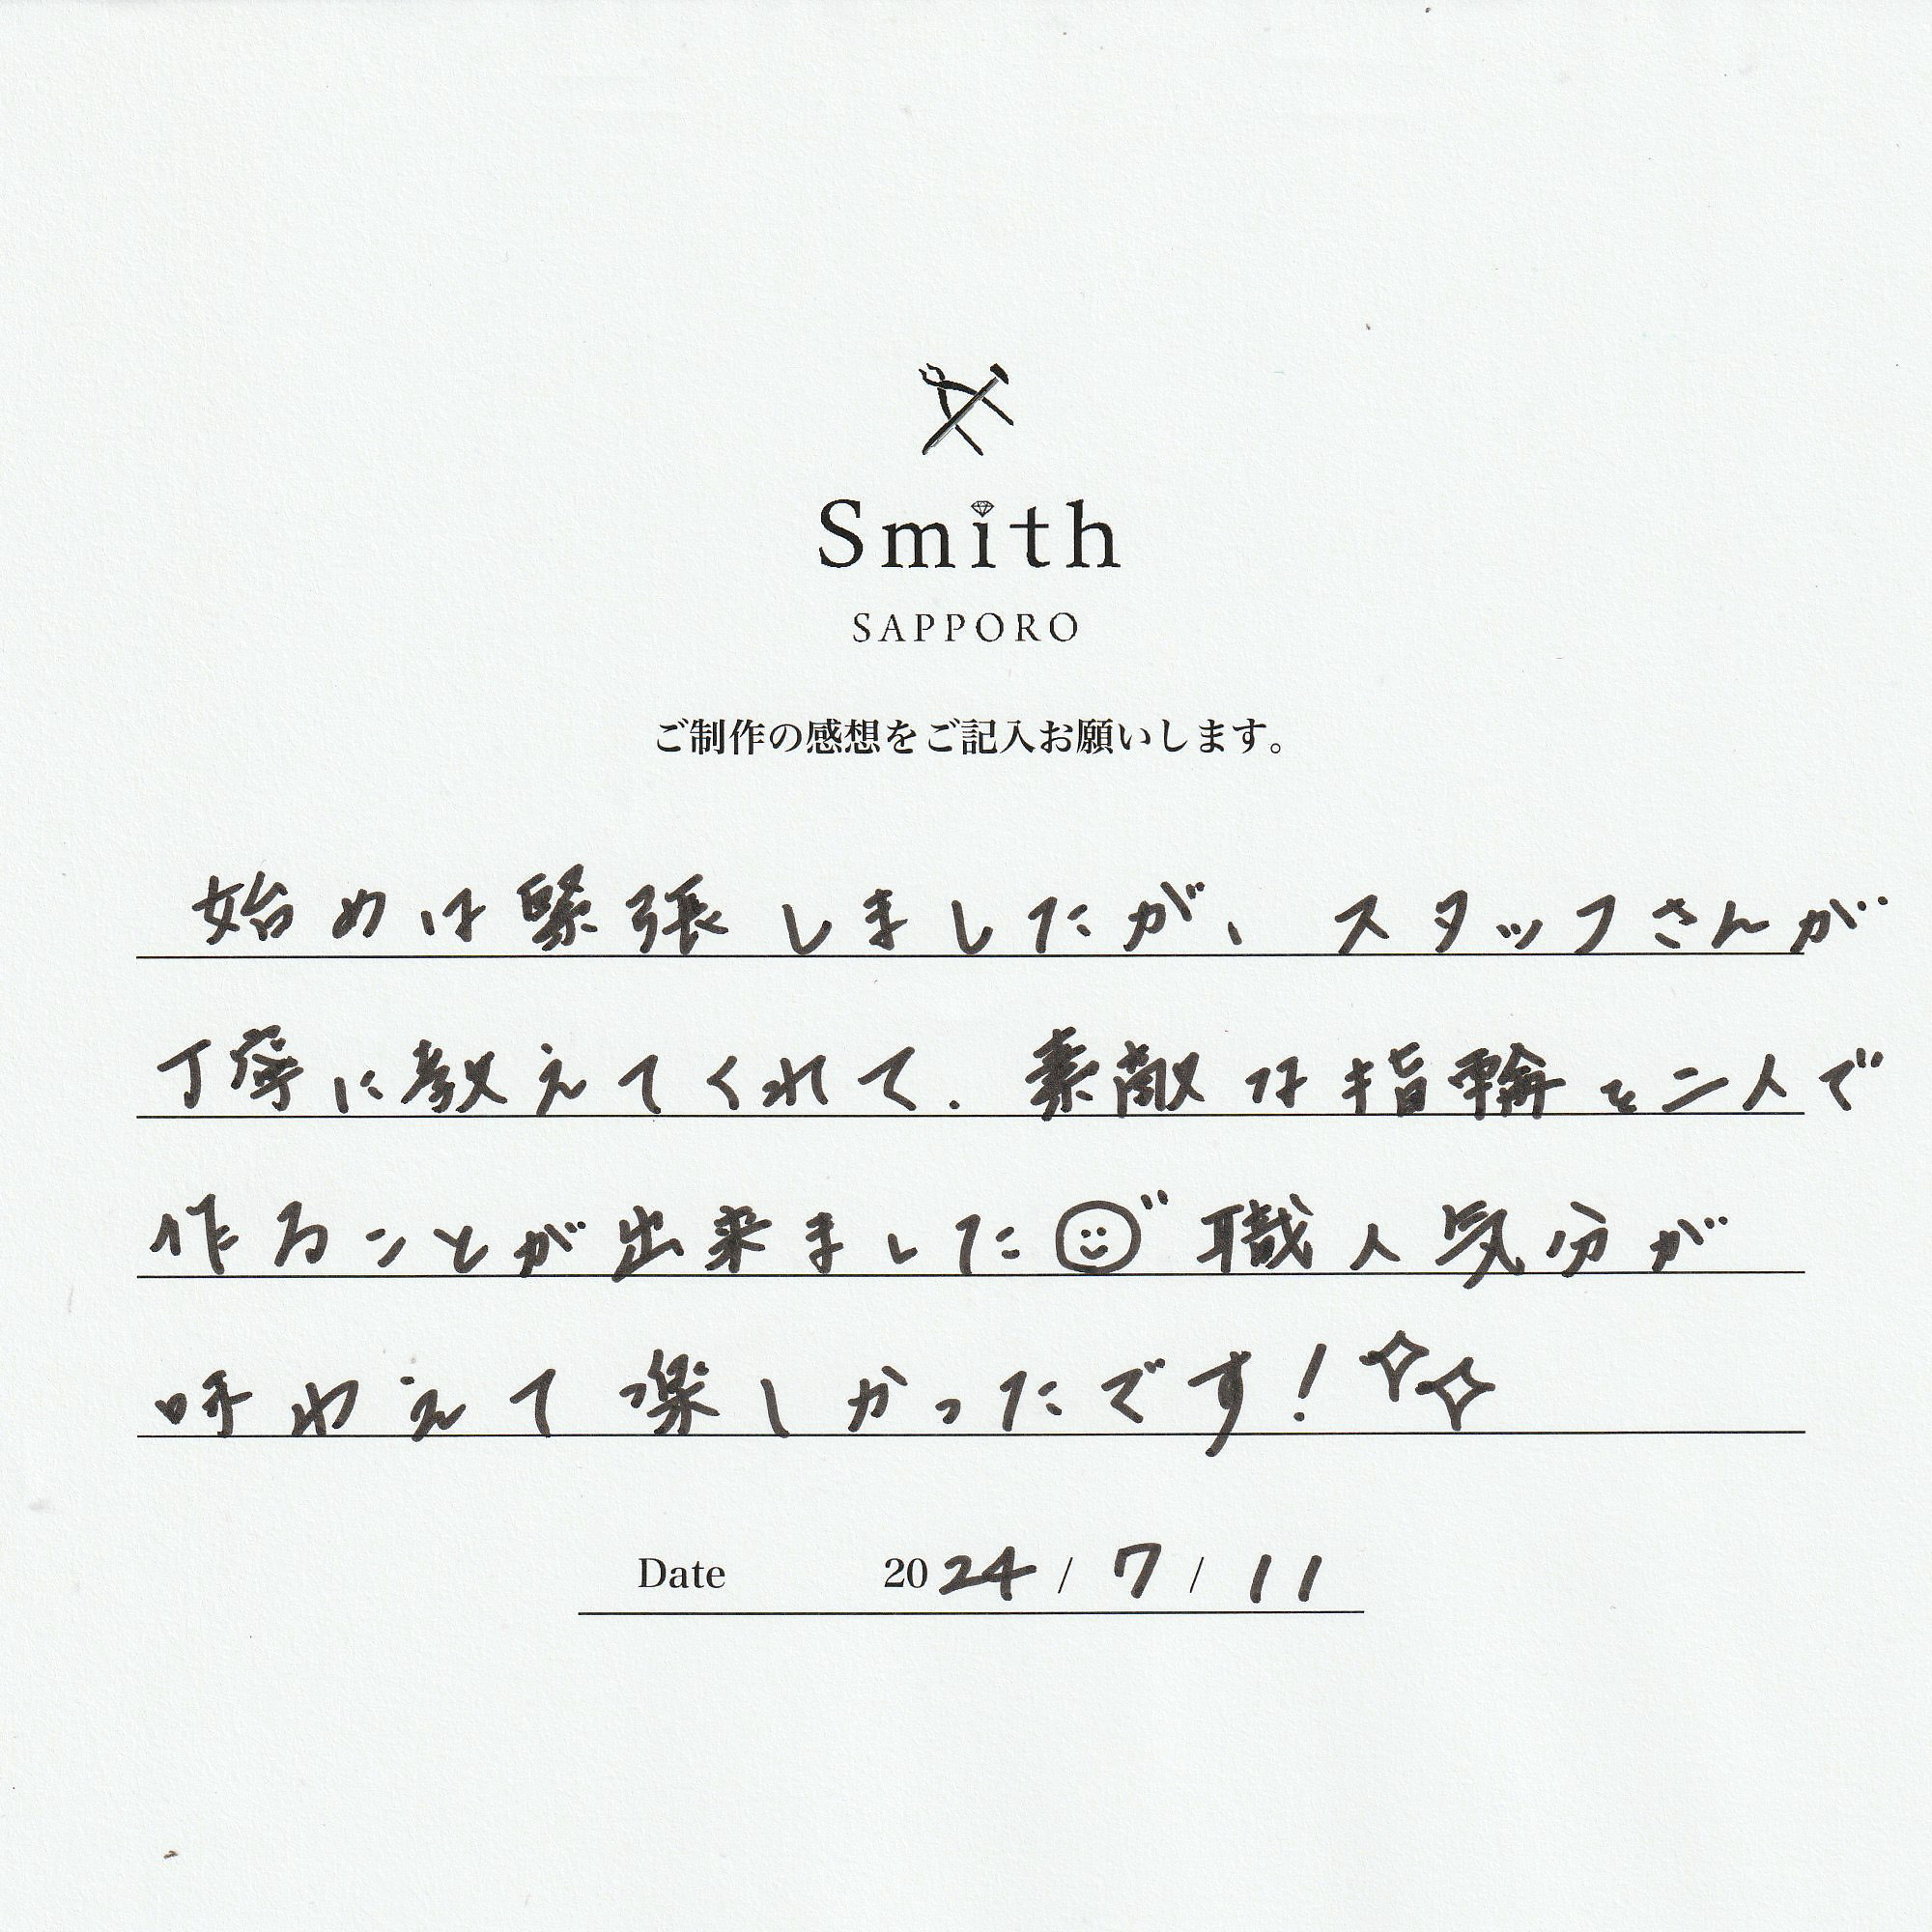 Smith
SAPPORO
ご制作の感想をご記入お願いします。
始めは緊張しましたが、スタッフさんが
丁寧に教えてくれて、素敵な指輪を二人で
作ることが出来ました☺"職人気分が
味わえて楽しかったです!✧✧
Date 2024 / 7 / 11